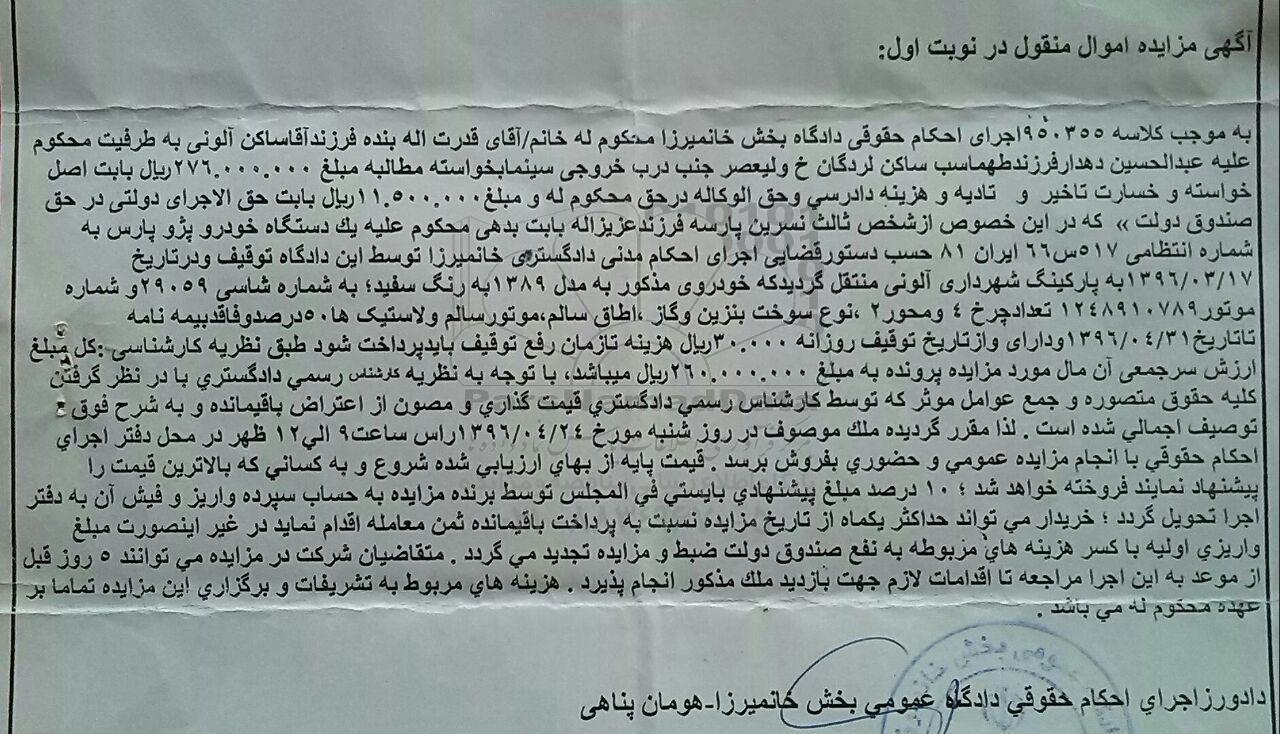 آگهی مزایده اموال منقول در نوبت اول:
به موجب کلاسه ۹۵۰۳۵۵اجرای احکام حقوقی دادگاه بخش خانمیرزا محکوم له خانم/آقای قدرت اله بنده فرزندآقاساکن آلونی به طرفیت محکوم
علیه عبدالحسین دهدارفرزندطهماسب ساکن لردگان خ ولیعصر جنب درب خروجی سینمابخواسته مطالبه مبلغ ۲۷۶.۰۰۰.۰۰۰ریال بابت اصل
خواسته و خسارت تاخیر و تادیه و هزینه دادرسي وحق الوکاله درحق محکوم له و مبلغ۱۱.۵۰۰.۰۰۰ریال بابت حق الاجرای دولتی در حق
صندوق دولت» که در این خصوص ازشخص ثالث نسرین پارسه فرزندعزیزاله بابت بدهی محکوم علیه یك دستگاه خودرو پژو پارس به
شماره انتظامی ۵۱۷س۶۶ ایران ۸۱ حسب دستورقضایی اجرای احکام مدنی دادگستری خانمیرزا توسط این دادگاه توقیف ودرتاریخ
۱۳۹۶/۰۳/۱۷به پارکینگ شهرداری آلونی منتقل گردیدکه خودروی مذکور به مدل ۱۳۸۹به رنگ سفید؛ به شماره شاسی ۲۹۰۵۹و شماره
موتور۱۲۴۸۹۱۰۷۸۹ تعدادچرخ ۴ ومحور۲ ،نوع سوخت بنزین وگاز ،اطاق سالم،موتورسالم ولاستیک ها۵۰درصدوفاقدبیمه نامه
تاتاریخ۱۳۹۶/۰۴/۳۱ودارای وازتاریخ توقیف روزانه ۳۰.۰۰۰ریال هزینه تازمان رفع توقیف بایدپرداخت شود طبق نظریه کارشناسی :کل مبلغ
ارزش سرجمعی آن مال مورد مزایده پرونده به مبلغ ۲۶۰.۰۰۰.۰۰۰ریال میباشد، با توجه به نظریه کارشناس رسمي دادگستري با در نظر گرفتن
کلیه حقوق متصوره و جمع عوامل موثر که توسط کارشناس رسمي دادگستري قیمت گذاري و مصون از اعتراض باقیمانده و به شرح فوق
توصیف اجمالي شده است . لذا مقرر گردیده ملك موصوف در روز شنبه مورخ ۱۳۹۶/۰۴/۲۴راس ساعت۹ الي۱۲ ظهر در محل دفتر اجراي
احکام حقوقي با انجام مزایده عمومي و حضوري بفروش برسد . قیمت پایه از بهاي ارزیابي شده شروع و به کساني که بالاترین قیمت را
پیشنهاد نمایند فروخته خواهد شد ؛ ۱۰ درصد مبلغ پیشنهادي بایستي في المجلس توسط برنده مزایده به حساب سپرده واریز و فیش آن به دفتر
اجرا تحویل گردد ؛ خریدار مي تواند حداکثر یکماه از تاریخ مزایده نسبت به پرداخت باقیمانده ثمن معامله اقدام نماید در غیر اینصورت مبلغ
واریزي اولیه با کسر هزینه هاي مزبوطه به نفع صندوق دولت ضبط و مزایده تجدید مي گردد . متقاضیان شرکت در مزایده مي توانند ۵ روز قبل
از موعد به این اجرا مراجعه تا اقدامات لازم جهت بازدید ملك مذکور انجام پذیرد . هزینه هاي مربوط به تشریفات و برگزاري این مزایده تماما بر
عهده محکوم له مي باشد .
دادورزاجراي احکام حقوقي دادگاه عمومي بخش خانمیرزا-هومان پناهی